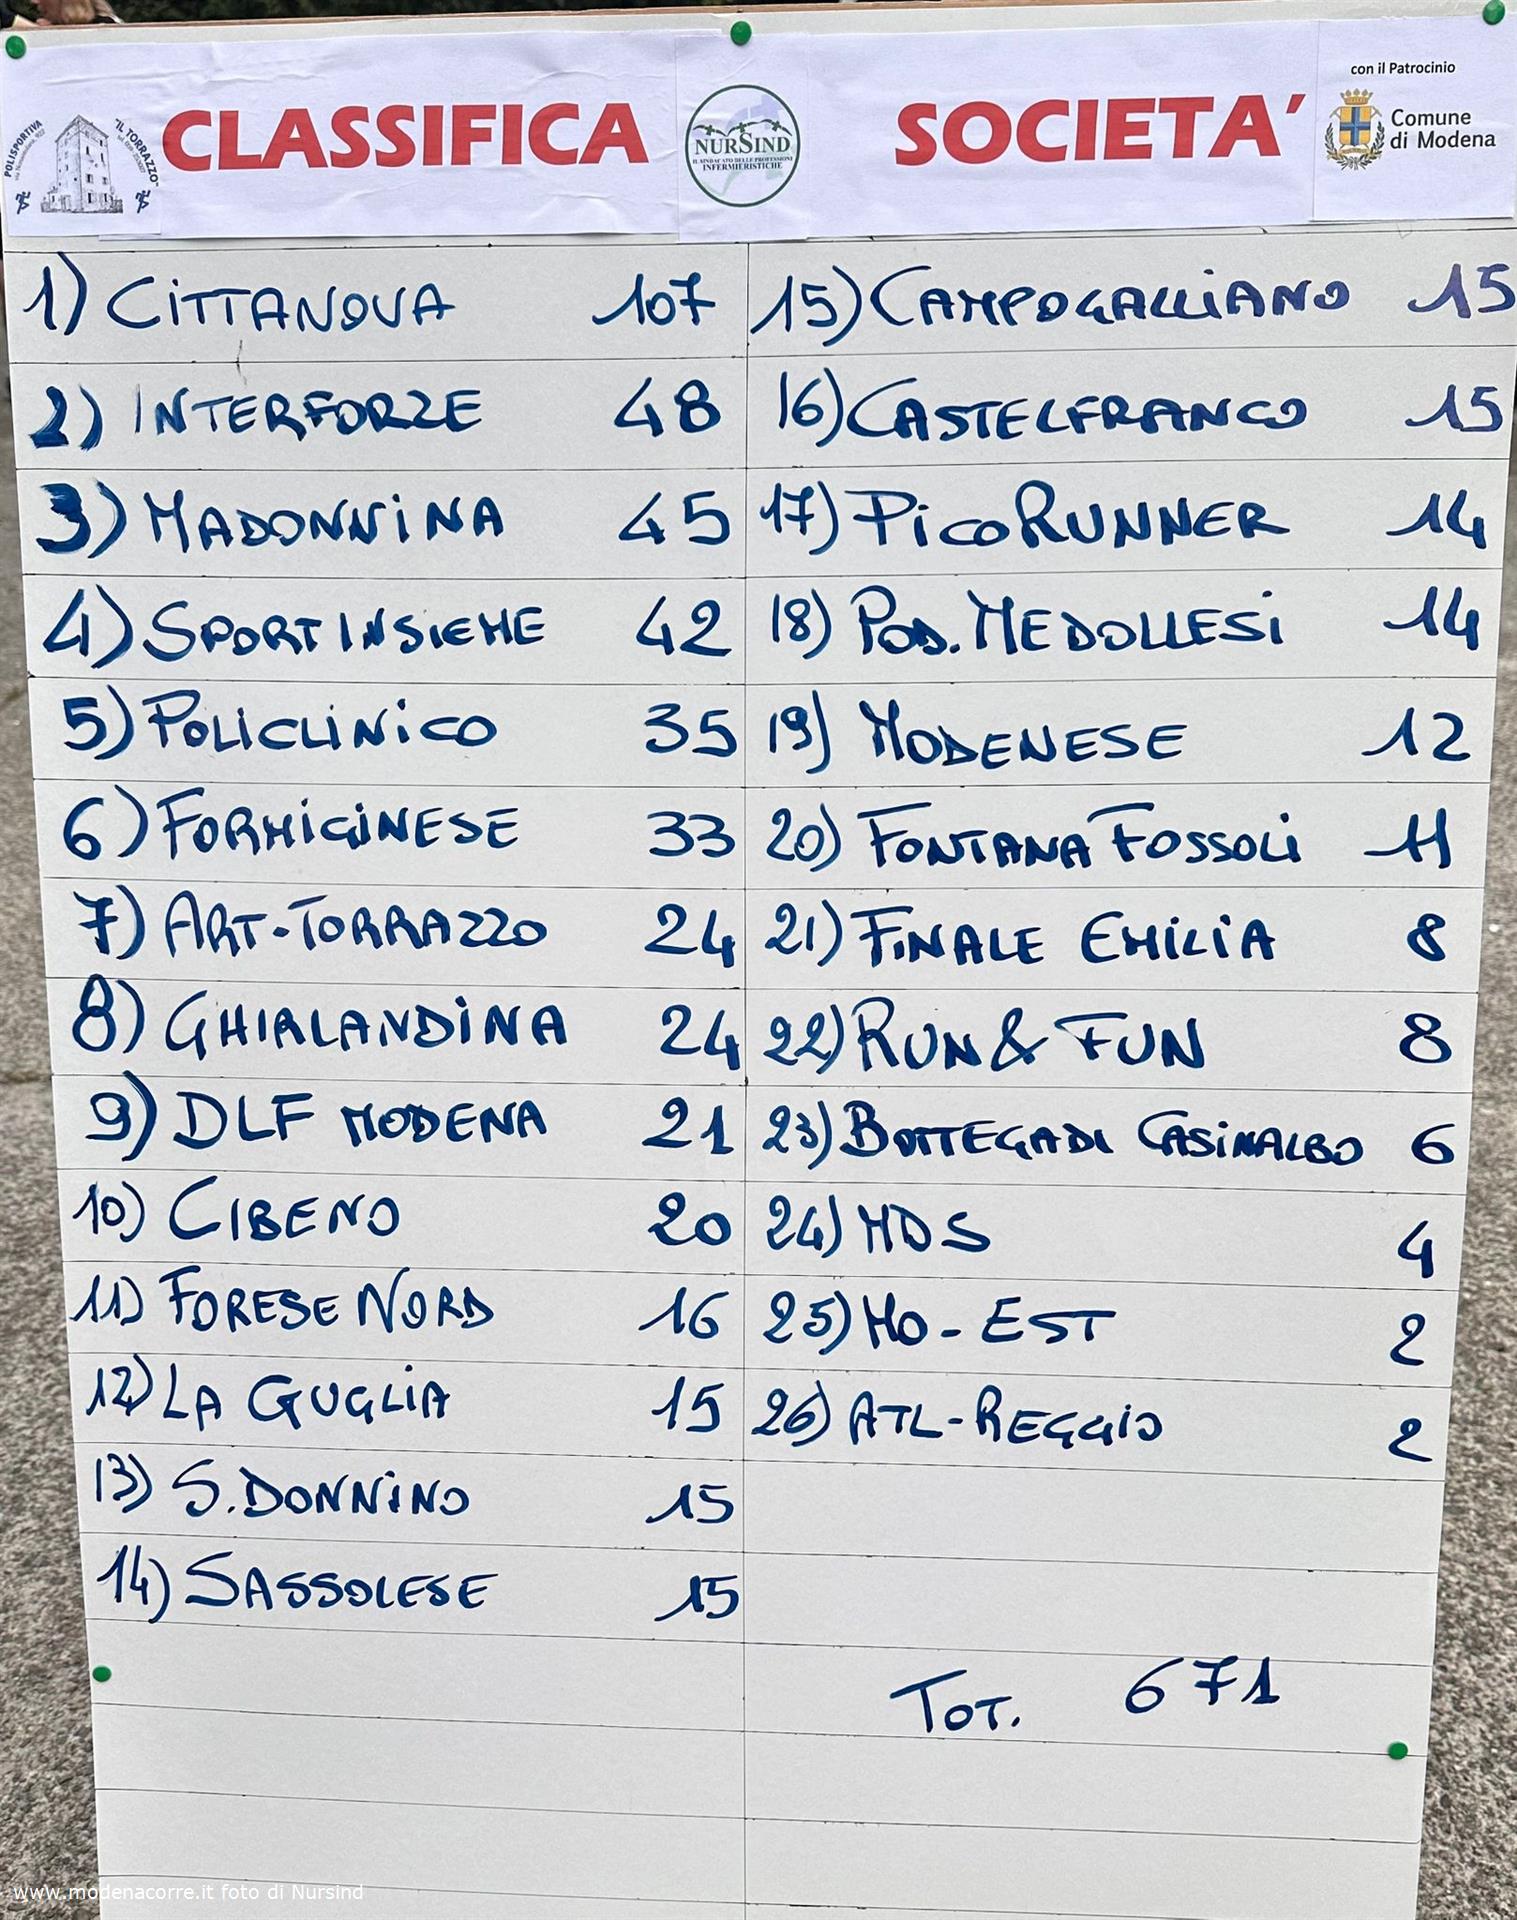 POLISPORTIVA
"IL TORRAZZO"
CLASSIFICA
NURSIND
IL SINDACATO DELLE PROFESSIONI
INFERMIERISTICHE
SOCIETA'
con il Patrocinio
Comune
di Modena
1) CITTANOVA 107
2) INTERFORZE 48
3) MADONNINA 45
4) SPORTINSIEME 42
5) POLICLINICO 35
6) FORMIGINESE 33
7) ART-TORRAZZO 24
8) GHIRLANDINA 24
9) DLF MODENA 21
10) CIBENO 20
11) FORESE NORD 16
12) LA GUGLIA 15
13) S. DONNINO 15
14) SASSOLESE 15
15) CAMPOGALLIANO 15
16) CASTELFRANCO 15
17) PICORUNNER 14
18) POD. MEDOLLESI 14
19) MODENESE 12
20) FONTANA FOSSOLI 11
21) FINALE EMILIA 8
22) RUN & FUN 8
23) BOTTEGA DI CASINALBO 6
24) MDS 4
25) MO-EST 2
26) ATL-REGGIO 2
TOT. 671
www.modenacorre.it foto di Nursind